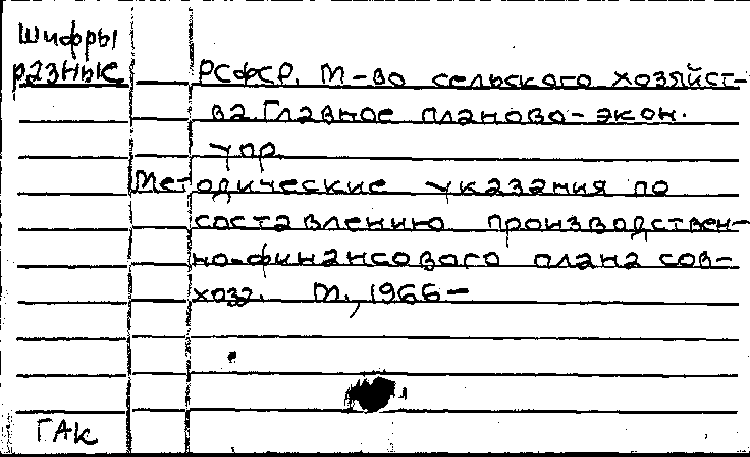 Шифры
разные
РСФСР. М-во сельского хозяйст-
ва. Главное планово-экон.
упр.
Методические указания по
составлению производствен-
но-финансового плана сов-
хоза. М., 1966-
ГАК